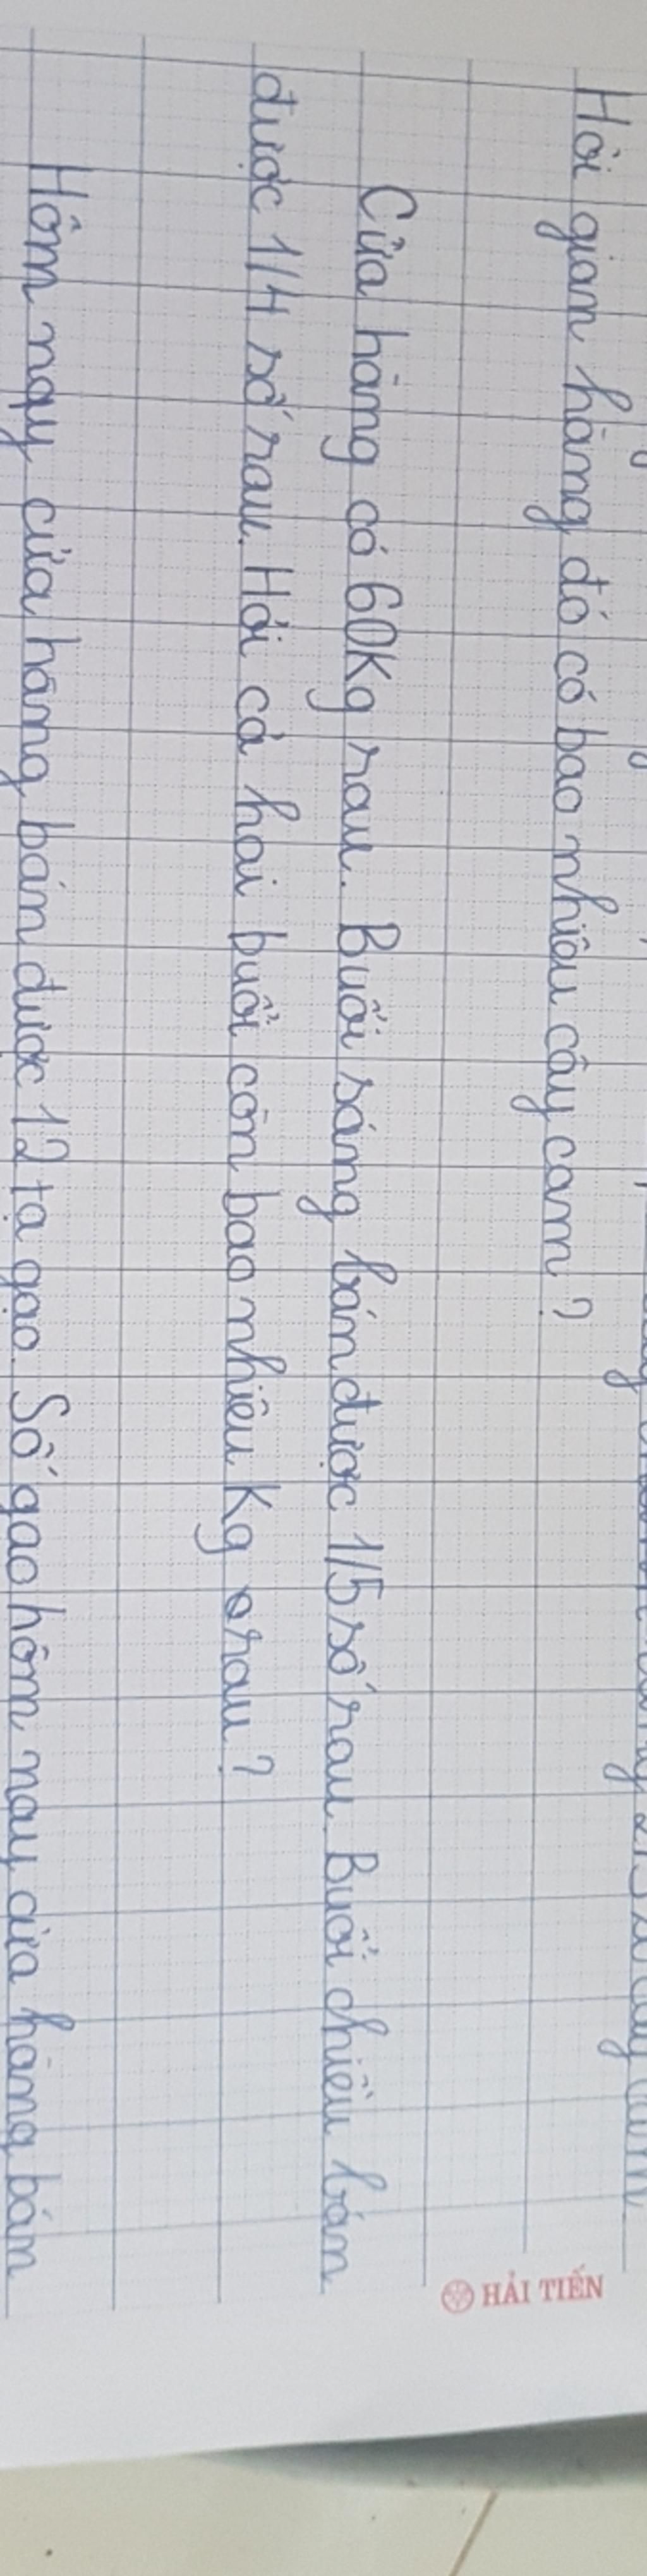 Hỏi gian hàng đó có bao nhiêu cây cam?
Cửa hàng có 60Kg rau. Buổi sáng bán được 1/5 số rau. Buổi chiều bán
được 1/4 số rau. Hỏi cả hai buổi còn bao nhiêu Kg rau?
Hôm nay cửa hàng bán được 12 tạ gạo. Số gạo hôm nay cửa hàng bán
HẢI TIẾN